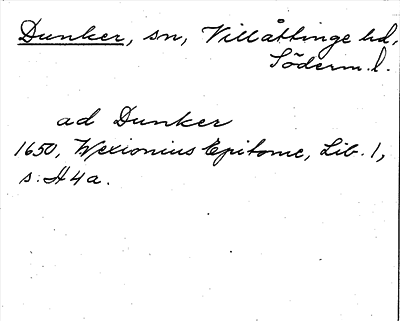 Dunker, sn, Villåttinge hd,
Söderm. l.
ad Dunker
1650, Wexionius Epitome, Lib. 1,
s. H4a.